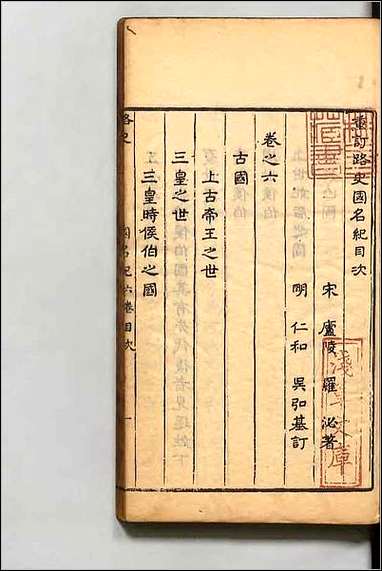 重訂路史國名紀目次
宋 廬陵 羅 泌著
明 仁和 吳弘基訂
卷之六
古國
上古帝王之世
三皇之世
三皇時侯伯之國
路史
國名紀六卷目次
一
淺草文庫